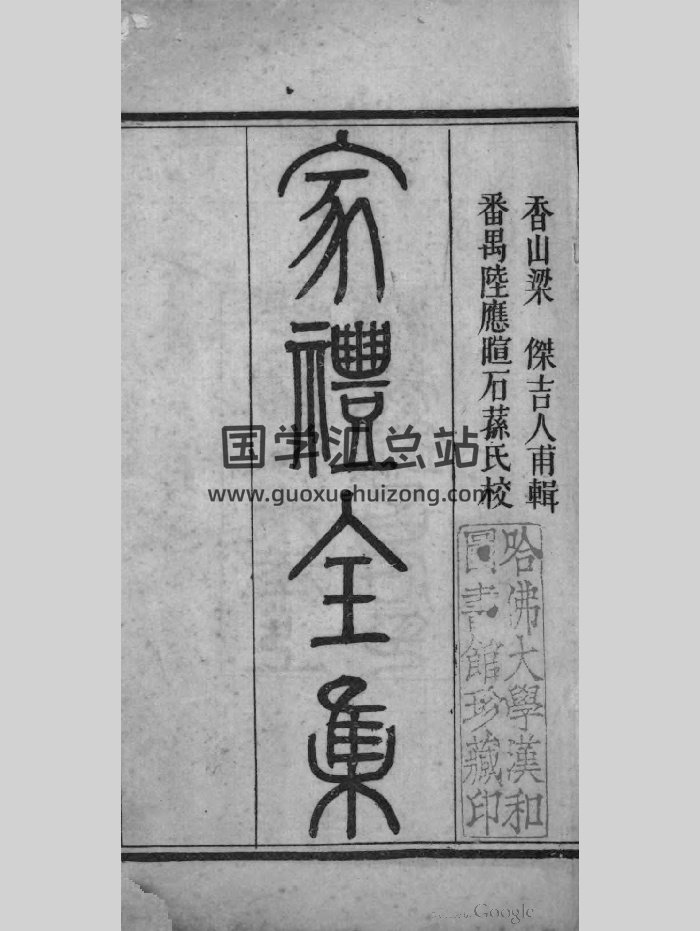 香山梁　傑吉人甫輯
番禺陸應暄石蓀氏校
家禮全集
哈佛大學漢和
圖書館珍藏印
国学汇总站
www.guoxuehuizong.com
Google